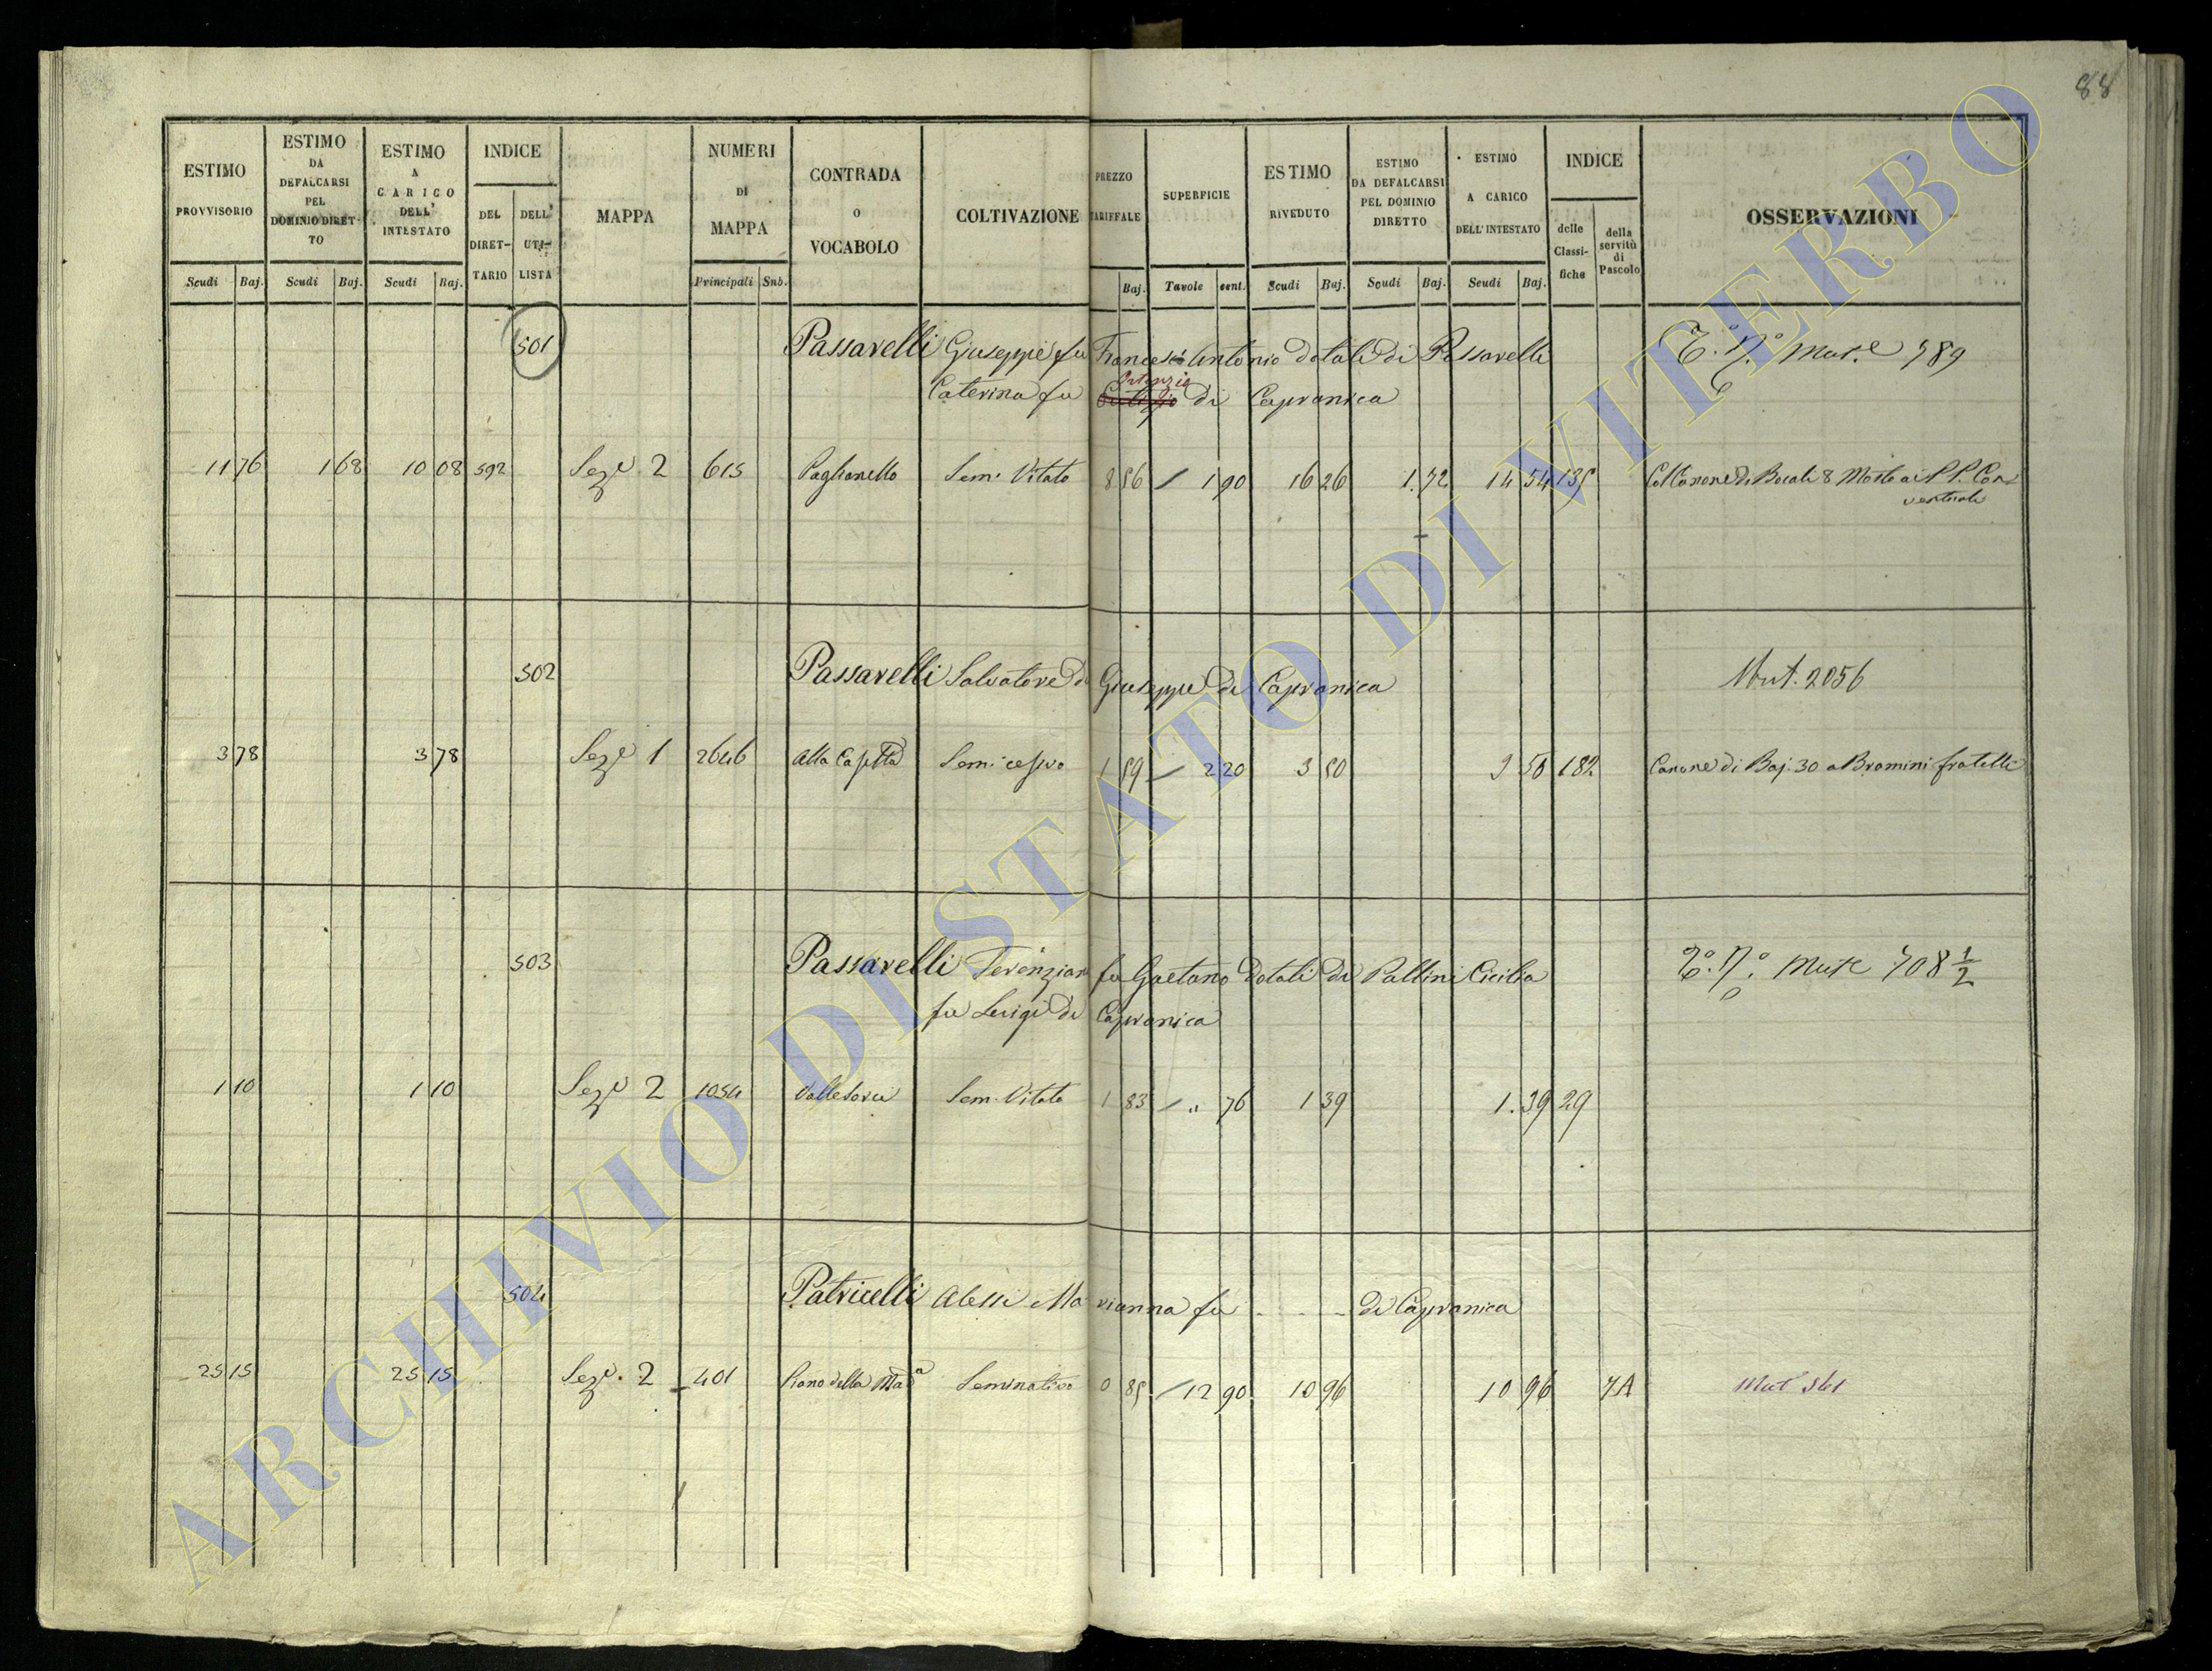 88
ESTIMO PROVVISORIO Scudi Baj.
ESTIMO DA DEFALCARSI PEL DOMINIO DIRET-TO Scudi Baj.
ESTIMO A CARICO DELL' INTESTATO Scudi Baj.
INDICE DEL DIRET-TARIO DELL' UTI-LISTA
MAPPA
NUMERI DI MAPPA Principali Sub.
CONTRADA O VOCABOLO
COLTIVAZIONE
PREZZO TARIFFALE Baj.
SUPERFICIE Tavole cent.
ESTIMO RIVEDUTO Scudi Baj.
ESTIMO DA DEFALCARSI PEL DOMINIO DIRETTO Scudi Baj.
ESTIMO A CARICO DELL' INTESTATO Scudi Baj.
INDICE delle Classi-fiche della servitù di Pascolo
OSSERVAZIONI
501 Passarelli Giuseppe fu Francesc Antonio dotali di Passarelli 789
Caterina fu Ortenzio di Capranica
11 76 1 68 10 08 592 Sezе 2 615 Paglianello Sem. Vitato 8 56 / 1 90 16 26 1.72 14 54 135 Col Canone di Bocali 8 Mosto ai P.P. Con
ventuali
502 Passarelli Salvatore di Giuseppe di Capranica Mut. 2056
3 78 3 78 Seze 1 2646 Alla Casetta Sem. cespo 1 59 / 2 20 3 50 3 50 182 Canone di Baj. 30 a Bramini fratelli
503 Passarelli Terenziano fu Gaetano Dotali di Pallini Cicilia 708 1/2
fu Luigi di Capranica
1 10 1 10 Seze 2 1054 Sem. Vitato 1 83 / " 76 1 39 1.39 29
504 Patricelli Alessi Marianna fu - - - di Capranica
25 15 25 15 Seze. 2 401 Piano della Mada Seminativo 0 85 / 12 90 10 96 10 96 7A Mut 361
ARCHIVIO DI STATO DI VITERBO